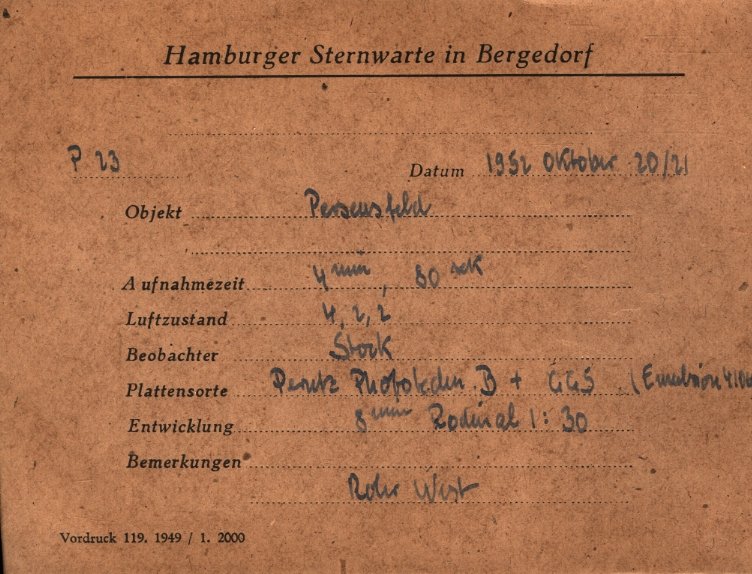 Hamburger Sternwarte in Bergedorf
P 23 Datum 1952 Oktober 20/21
Objekt Perseusfeld
Aufnahmezeit 4 min, 80 sek
Luftzustand 4, 2, 2
Beobachter Stock
Plattensorte Perutz B + GG5 (Emulsion
Entwicklung 8 min Rodinal 1:30
Bemerkungen
Rohr West
Vordruck 119. 1949 / 1. 2000